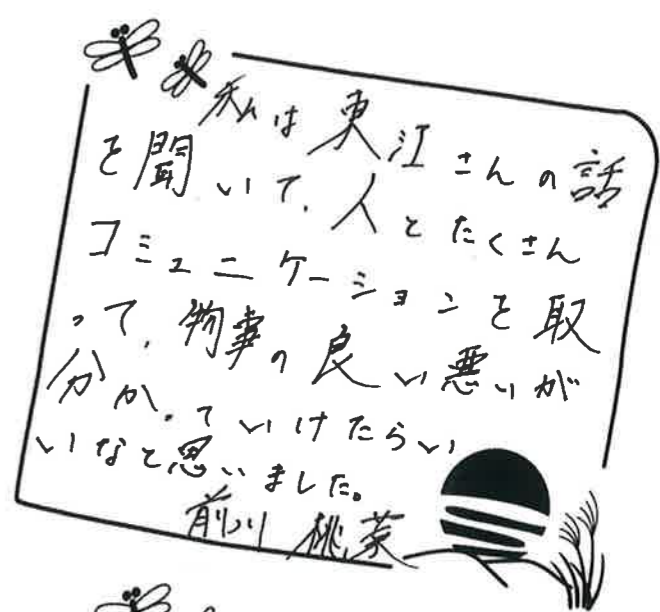 私は東江さんの話
を聞いて、人とたくさん
コミュニケーションを取
って、物事の良い悪いが
分かっていけたらい
いなと思いました。
前川 桃菜